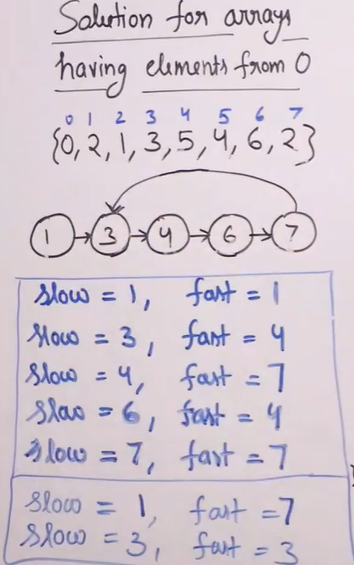 Solution for arrays
having elements from 0
0 1 2 3 4 5 6 7
{0, 2, 1, 3, 5, 4, 6, 2}
1 → 3 → 4 → 6 → 7
slow = 1, fast = 1
slow = 3, fast = 4
slow = 4, fast = 7
slow = 6, fast = 4
slow = 7, fast = 7
slow = 1, fast = 7
slow = 3, fast = 3